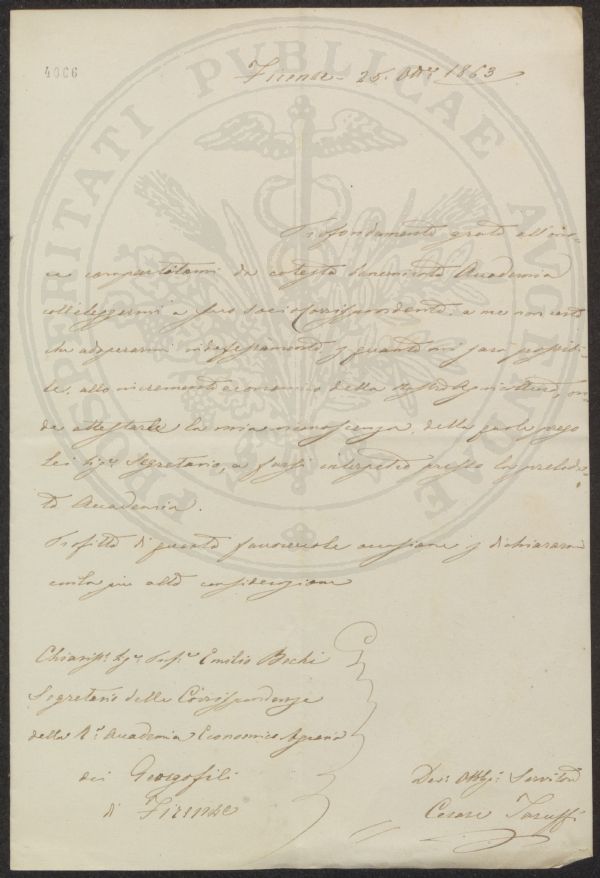 4006
Firenze 25. 1863
PROSPERITATI PVBLICAE AVGENDAE
Profondamente grato all'ono-
re compartitomi da cotesta benemerita Accademia
coll'eleggermi a suo Socio Corrispondente, a me non resta
che adoperarmi indefessamente p quanto mi sarà possibi-
le, allo incremento economico della Agricoltura, on-
de attestarle la mia riconoscenza, della quale prego
Lei Segretario, a farsi interpetre presso la preloda-
ta Accademia.
Profitto di questa favorevole occasione p dichiararmi
con la più alta considerazione
Chiariss. Sigr. Profr. Emilio Bechi
Segretario delle Corrispondenze
della R. Accademia Economico Agraria
dei Georgofili
di Firenze
Dev. Obbl. Servitore
Cesare Taruffi